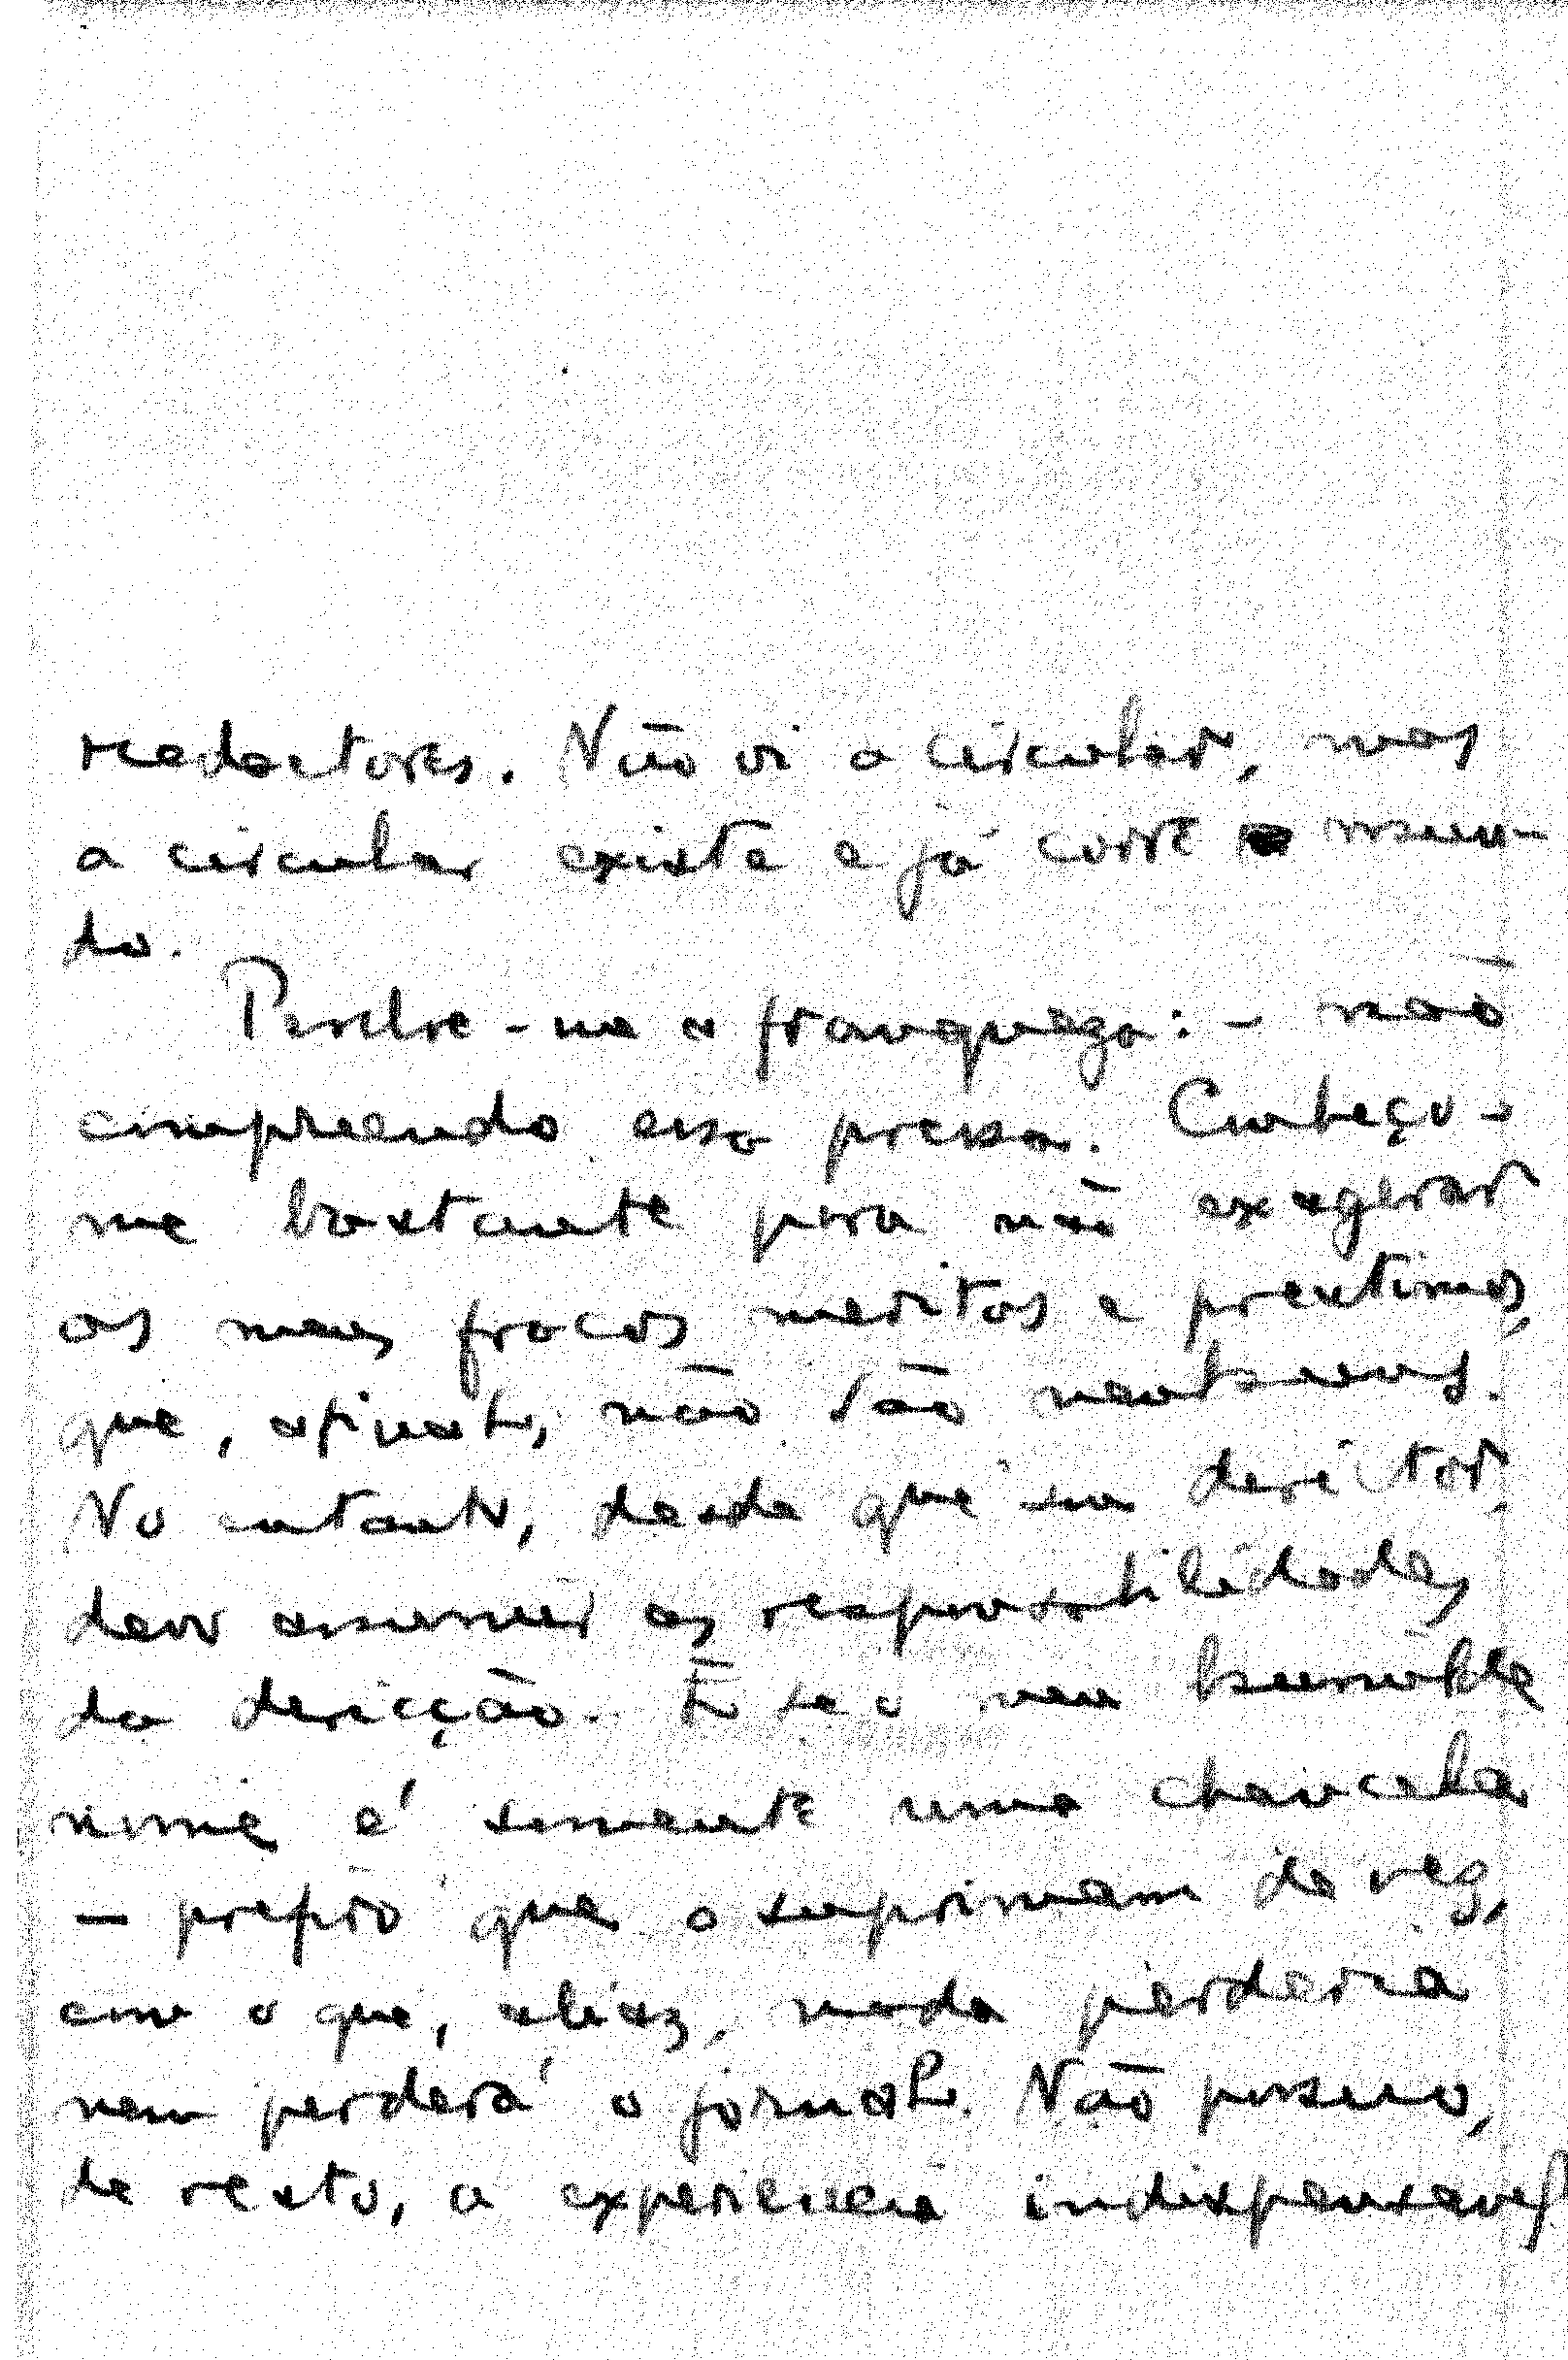 redactores. Não vi a circular, mas
a circular existe e já corre mun-
do.
Perdôe-me a franqueza: - não
comprehendo essa pressa. Conheço-
me bastante para não exagerar
os meus fracos meritos e prestimos,
que, afinal, não são
No entanto, desde que sou director,
devo assumir as responsabilidades
da direcção. E se o meu humilde
nome é somente uma chancela
- prefiro que o suprimam de vez,
com o que, aliaz, nada perderia
nem perderá o jornal. Não possuo,
de resto, a experiencia indispensavel